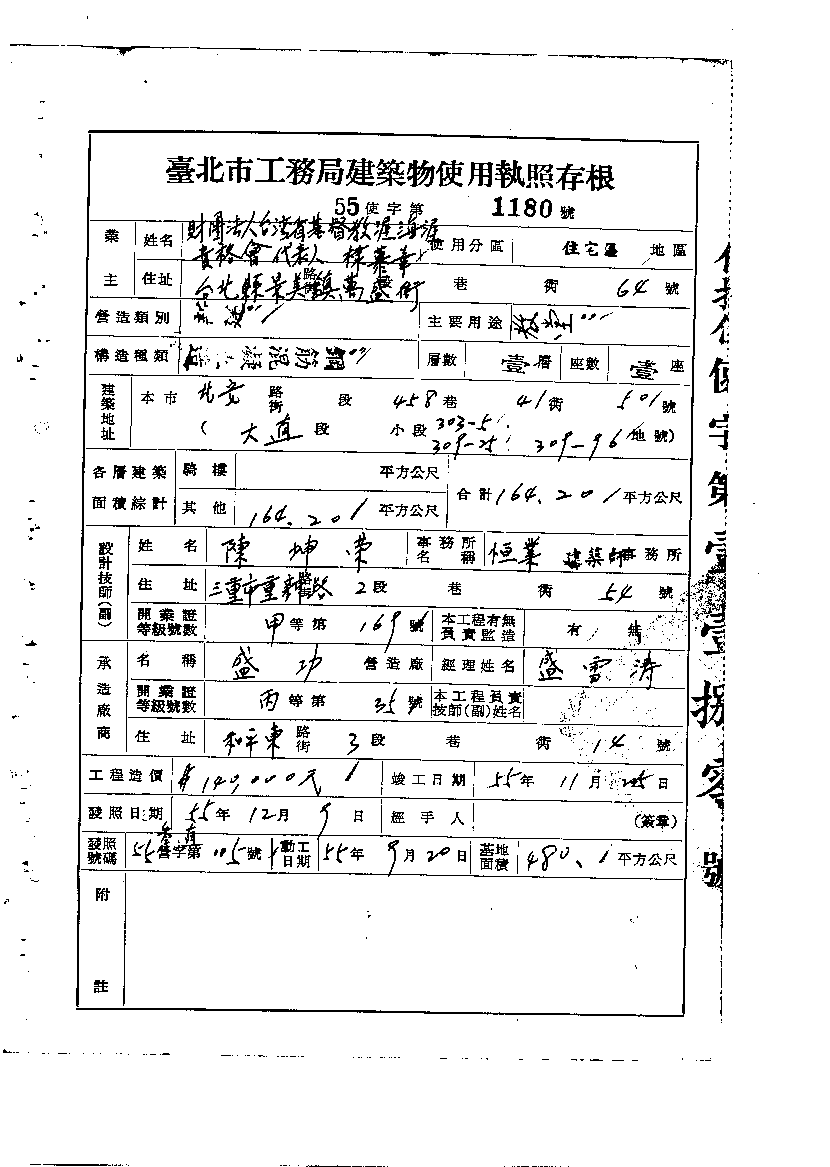 臺北市工務局建築物使用執照存根
55使字第 1180號
業主 姓名 財團法人台灣省基督教 使用分區 住宅區 地區
會代表人 林
住址 台北縣景美鎮萬盛街 巷 衖 64 號
營造類別 主要用途 教堂
構造種類 鋼筋混凝 層數 壹層 座數 壹座
建築地址 本市 北安 路街 段 458巷 41衖 501號
( 大直段 小段 303-5 309-25 309-96 地號)
各層建築面積綜計 騎樓 平方公尺 合計 164.20 平方公尺
其他 164.20 平方公尺
設計技師(副) 姓名 陳坤榮 事務所名稱 恒業建築師事務所
住址 三重市重新路 2段 巷 衖 54 號
開業證等級號數 甲等第 169號 本工程有無負責監造 有 無
承造廠商 名稱 盛功 營造廠 經理姓名 盛雪濤
開業證等級號數 丙等第 35號 本工程負責技師(副)姓名
住址 和平東 路街 3段 巷 衖 14 號
工程造價 $140,000元 竣工日期 55年 11月 25日
發照日期 55年 12月 9日 經手人 (簽章)
發照號碼 55 字第 號 動工日期 55年 9月 20日 基地面積 480. 平方公尺
附註
使字第壹壹捌零號